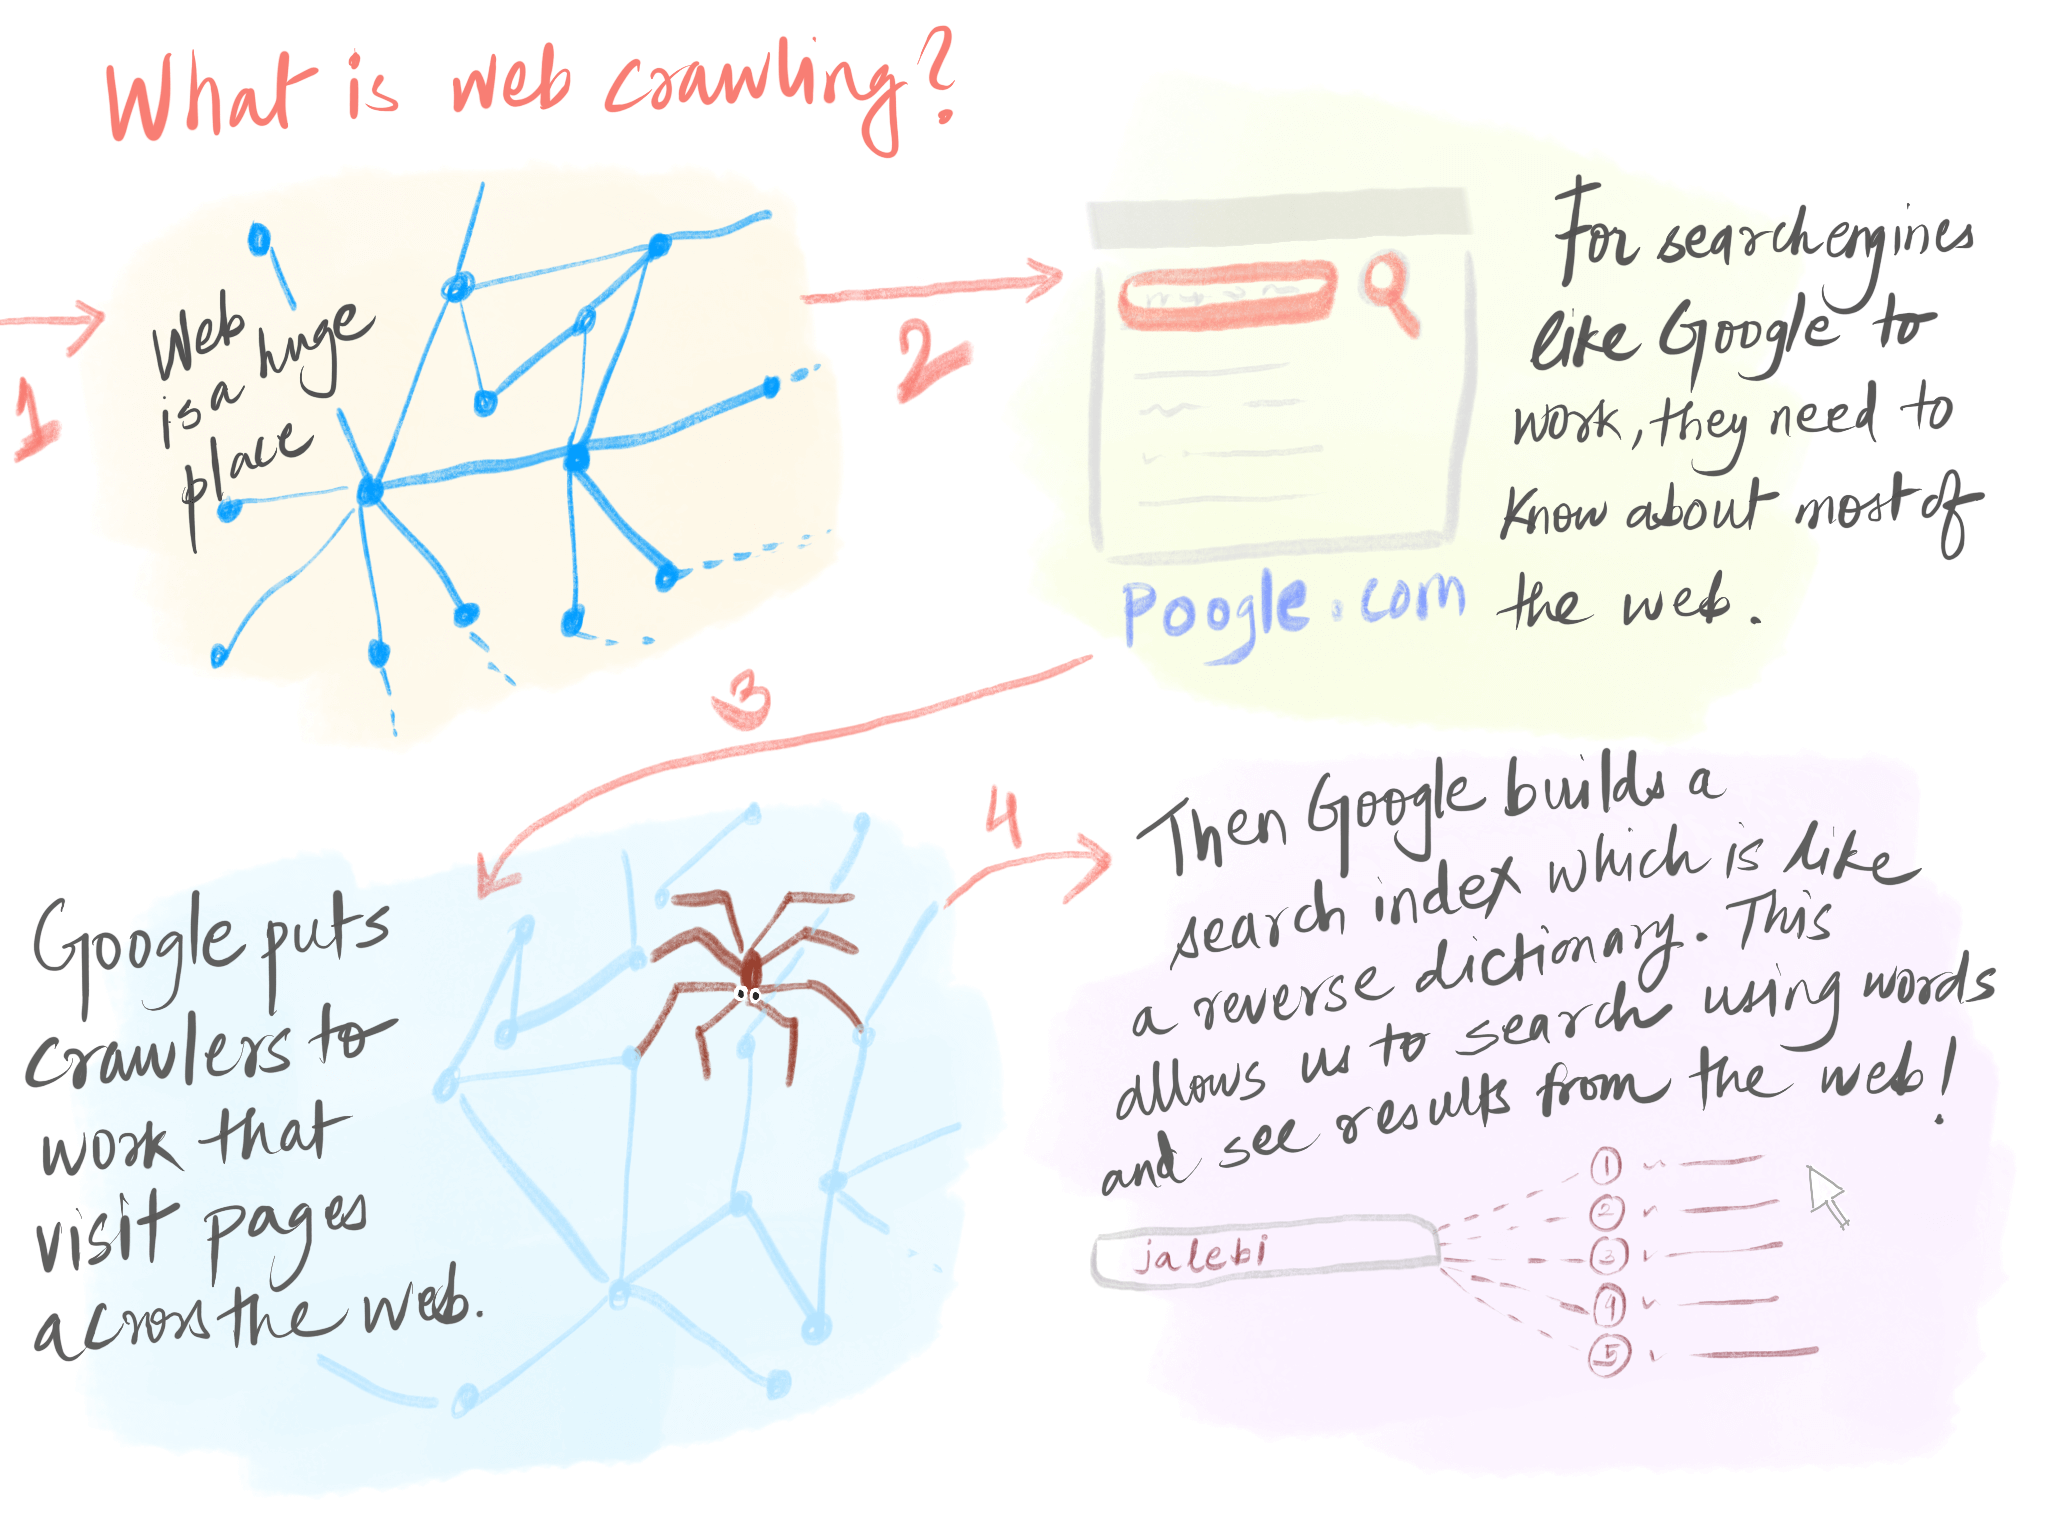 What is web crawling?
1
Web
is a huge
place
2
Poogle.com
For search engines
like Google to
work, they need to
know about most of
the web.
3
Google puts
crawlers to
work that
visit pages
across the web.
4
Then Google builds a
search index which is like
a reverse dictionary. This
allows us to search using words
and see results from the web!
jalebi
1
2
3
4
5